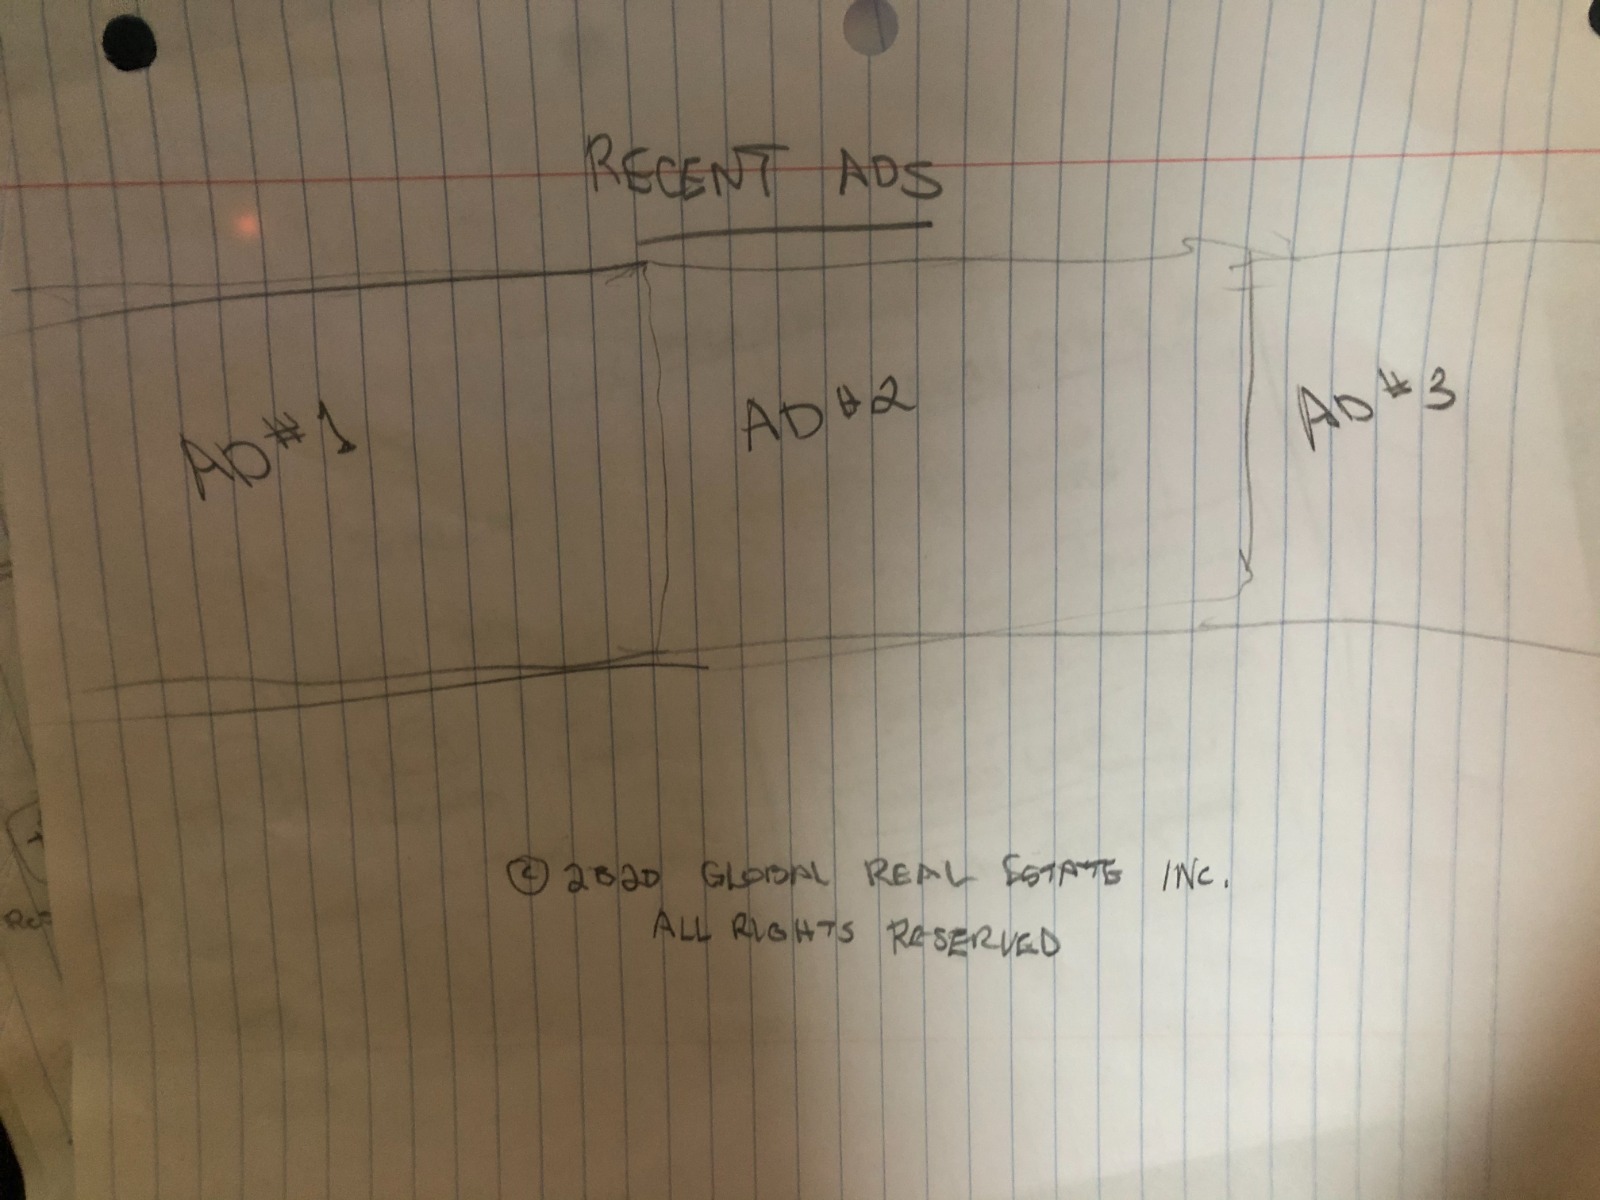 RECENT ADS
AD #1
AD #2
AD #3
© 2020 GLOBAL REAL ESTATE INC.
ALL RIGHTS RESERVED